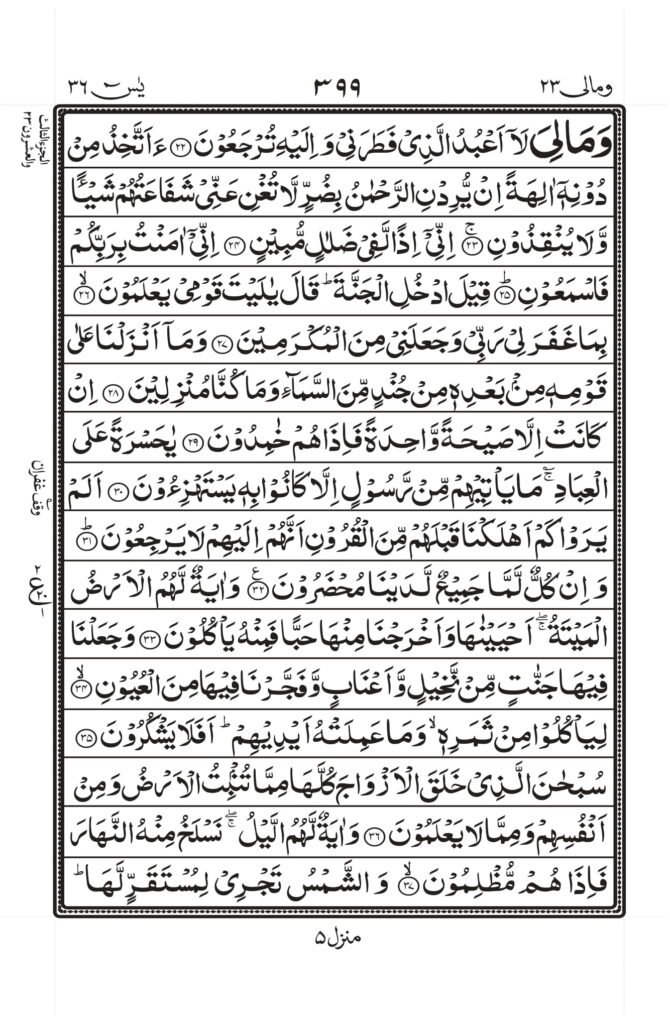 ومالی ۲۳
۳۹۹
یٰسٓ ۳۶
الجزء الثالث
والعشرون ۲۳
وَمَالِیَ لَاۤ اَعْبُدُ الَّذِیْ فَطَرَنِیْ وَ اِلَیْهِ تُرْجَعُوْنَ ۲۲ ءَاَتَّخِذُ مِنْ
دُوْنِهٖۤ اٰلِهَةً اِنْ یُّرِدْنِ الرَّحْمٰنُ بِضُرٍّ لَّا تُغْنِ عَنِّیْ شَفَاعَتُهُمْ شَیْـًٔا
وَّلَا یُنْقِذُوْنِ ۲۳ۚ اِنِّیْۤ اِذًا لَّفِیْ ضَلٰلٍ مُّبِیْنٍ ۲۴ اِنِّیْۤ اٰمَنْتُ بِرَبِّكُمْ
فَاسْمَعُوْنِ ۲۵ؕ قِیْلَ ادْخُلِ الْجَنَّةَ ؕ قَالَ یٰلَیْتَ قَوْمِیْ یَعْلَمُوْنَ ۲۶ۙ
بِمَا غَفَرَ لِیْ رَبِّیْ وَجَعَلَنِیْ مِنَ الْمُكْرَمِیْنَ ۲۷ وَمَاۤ اَنْزَلْنَا عَلٰی
قَوْمِهٖ مِنْۢ بَعْدِهٖ مِنْ جُنْدٍ مِّنَ السَّمَآءِ وَمَا كُنَّا مُنْزِلِیْنَ ۲۸ اِنْ
كَانَتْ اِلَّا صَیْحَةً وَّاحِدَةً فَاِذَا هُمْ خٰمِدُوْنَ ۲۹ یٰحَسْرَةً عَلَی
الْعِبَادِ ۚ مَا یَاْتِیْهِمْ مِّنْ رَّسُوْلٍ اِلَّا كَانُوْا بِهٖ یَسْتَهْزِءُوْنَ ۳۰ اَلَمْ
وقف غفران
یَرَوْا كَمْ اَهْلَكْنَا قَبْلَهُمْ مِّنَ الْقُرُوْنِ اَنَّهُمْ اِلَیْهِمْ لَا یَرْجِعُوْنَ ۳۱ؕ
وَ اِنْ كُلٌّ لَّمَّا جَمِیْعٌ لَّدَیْنَا مُحْضَرُوْنَ ۳۲ وَاٰیَةٌ لَّهُمُ الْاَرْضُ
الْمَیْتَةُ ۚ اَحْیَیْنٰهَا وَاَخْرَجْنَا مِنْهَا حَبًّا فَمِنْهُ یَاْكُلُوْنَ ۳۳ وَجَعَلْنَا
فِیْهَا جَنّٰتٍ مِّنْ نَّخِیْلٍ وَّاَعْنَابٍ وَّفَجَّرْنَا فِیْهَا مِنَ الْعُیُوْنِ ۳۴ۙ
لِیَاْكُلُوْا مِنْ ثَمَرِهٖ ۙ وَمَا عَمِلَتْهُ اَیْدِیْهِمْ ؕ اَفَلَا یَشْكُرُوْنَ ۳۵
سُبْحٰنَ الَّذِیْ خَلَقَ الْاَزْوَاجَ كُلَّهَا مِمَّا تُنْۢبِتُ الْاَرْضُ وَمِنْ
اَنْفُسِهِمْ وَمِمَّا لَا یَعْلَمُوْنَ ۳۶ وَاٰیَةٌ لَّهُمُ الَّیْلُ ۚ نَسْلَخُ مِنْهُ النَّهَارَ
فَاِذَا هُمْ مُّظْلِمُوْنَ ۳۷ۙ وَ الشَّمْسُ تَجْرِیْ لِمُسْتَقَرٍّ لَّهَا ؕ
منزل ۵